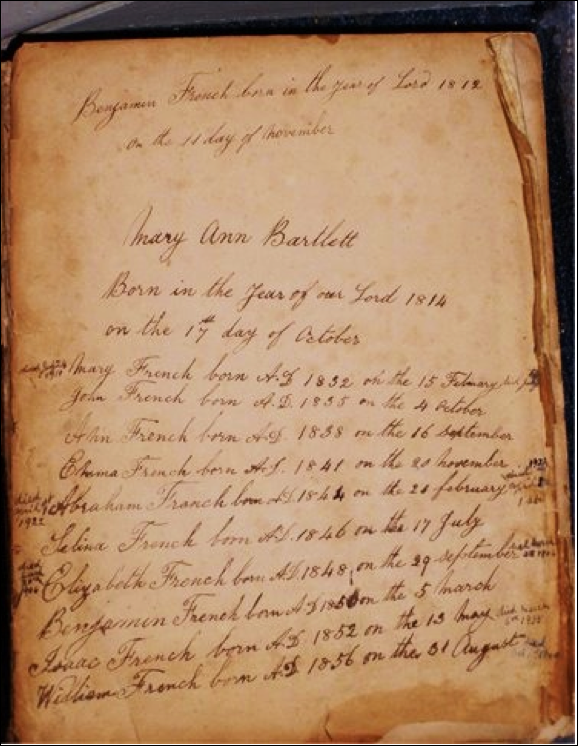 Benjamin French born in the year of Lord 1812
on the 11 day of November
Mary Ann Bartlett
Born in the Year of our Lord 1814
on the 17th day of October
Mary French born A.D 1832 on the 15 February
John French born A.D. 1835 on the 4 October
French born A.D. 1838 on the 16 september
Emma French born A.D. 1841 on the 20 november
Abraham Franch born A.D 1844 on the 26 february
1922
Selina French born A.D. 1846 on the 17 July
Elizabeth French born A.D. 1848 on the 29 september
Benjamin French born A.D 1850 on the 5 March
Isaac French born A.D 1852 on the 13 May
William French born A.D 1856 on the 31 August